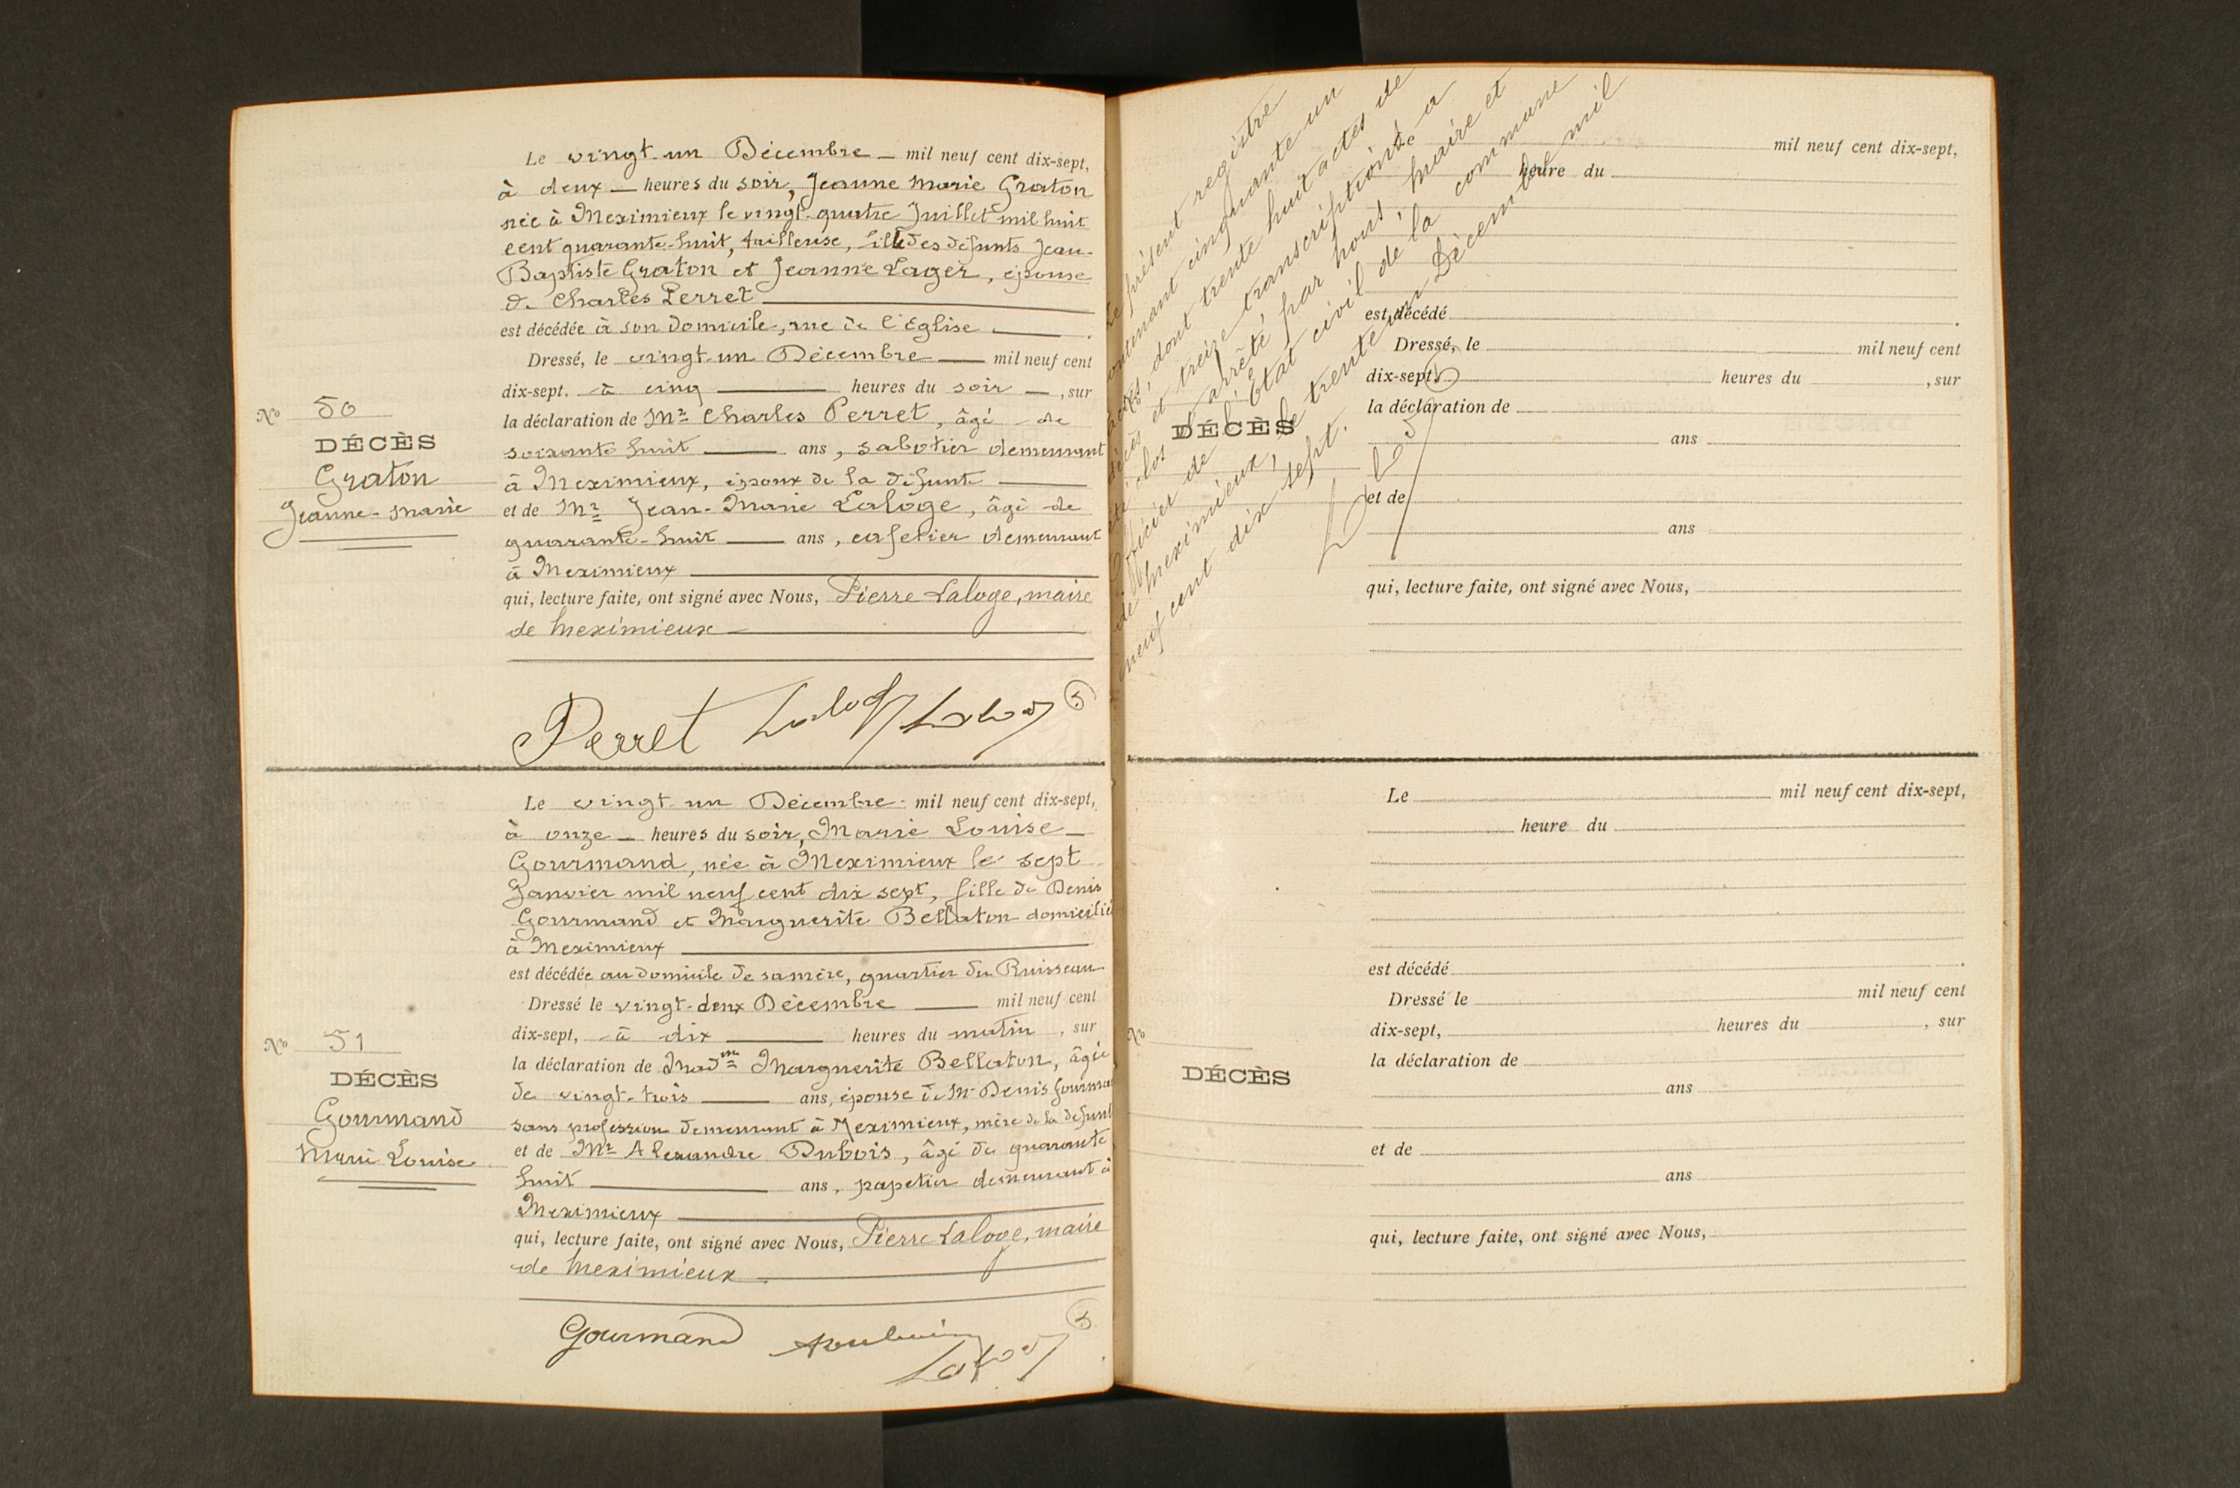 Le vingt-un Décembre mil neuf cent dix-sept,
à deux heures du soir, Jeanne Marie Graton
née à Meximieux le vingt-quatre Juillet mil huit
cent quarante-huit, tailleuse, fille des défunts Jean-
Baptiste Graton et Jeanne Lager, épouse
de Charles Perret
est décédée à son domicile, rue de l'Église .
Dressé, le vingt-un Décembre mil neuf cent
dix-sept. à cinq heures du soir , sur
No 50
DÉCÈS
Graton
Jeanne-Marie
la déclaration de Mr Charles Perret, âgé de
soixante huit ans, sabotier demeurant
à Meximieux, époux de la défunte
et de Mr Jean-Marie Laloge, âgé de
quarante-huit ans, cafetier demeurant
à Meximieux
qui, lecture faite, ont signé avec Nous, Pierre Laloge, maire
de Meximieux
Perret Laloge Laloge
Le vingt-un Décembre mil neuf cent dix-sept,
à onze heures du soir, Marie Louise
Gourmand, née à Meximieux le sept
Janvier mil neuf cent dix sept, fille de Denis
Gourmand et Marguerite Bellaton domiciliés
à Meximieux
est décédée au domicile de sa mère, quartier du Ruisseau
Dressé le vingt-deux Décembre mil neuf cent
dix-sept, à dix heures du matin , sur
No 51
DÉCÈS
Gourmand
Marie Louise
la déclaration de Madme Marguerite Bellaton, âgée
de vingt-trois ans, épouse de Mr Denis Gourmand
sans profession demeurant à Meximieux, mère de la défunte
et de Mr Alexandre Dubois, âgé de quarante
huit ans, papetier demeurant à
Meximieux
qui, lecture faite, ont signé avec Nous, Pierre Laloge, maire
de Meximieux.
Gourmand Laloge
Le présent registre
contenant cinquante un
actes, dont trente huit actes de
décès et treize transcriptions a
été clos et arrêté par nous, maire et
officier de l'État civil de la commune
de Meximieux, le trente un Décembre mil
neuf cent dix sept.
Laloge
mil neuf cent dix-sept,
heure du
est décédé .
Dressé, le mil neuf cent
dix-sept. heures du , sur
No
DÉCÈS
la déclaration de
ans
et de
ans
qui, lecture faite, ont signé avec Nous,
Le mil neuf cent dix-sept,
heure du
est décédé .
Dressé le mil neuf cent
dix-sept, heures du , sur
No
DÉCÈS
la déclaration de
ans
et de
ans
qui, lecture faite, ont signé avec Nous,